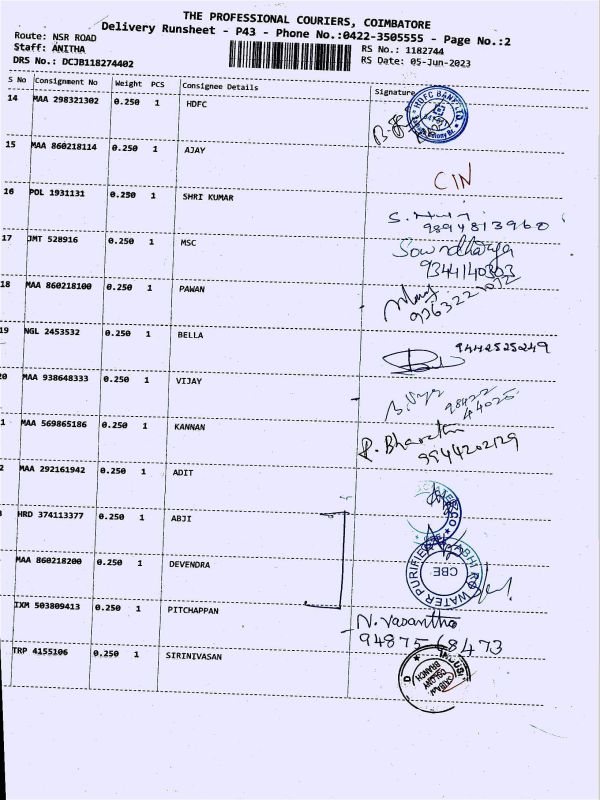 THE PROFESSIONAL COURIERS, COIMBATORE
Delivery Runsheet - P43 - Phone No.:0422-3505555 - Page No.:2
Route: NSR ROAD
Staff: ANITHA
DRS No.: DCJB118274402
RS No.: 1182744
RS Date: 05-Jun-2023
S No Consignment No Weight PCS Consignee Details Signature
14 MAA 298321302 0.250 1 HDFC
HDFC BANK LTD
15 MAA 860218114 0.250 1 AJAY
CIN
16 POL 1931131 0.250 1 SHRI KUMAR
9894813960
17 JMT 528916 0.250 1 MSC
Sowndharya
9344140303
18 MAA 860218100 0.250 1 PAWAN
19 NGL 2453532 0.250 1 BELLA
9442525249
20 MAA 938648333 0.250 1 VIJAY
1 MAA 569865186 0.250 1 KANNAN
P. Bharathi
9944202129
2 MAA 292161942 0.250 1 ADIT
HRD 374113377 0.250 1 ABJI
MAA 860218200 0.250 1 DEVENDRA
WATER PURIFIER
CBE
IXM 503809413 0.250 1 PITCHAPPAN
N. Vasantha
94875 68473
TRP 4155106 0.250 1 SIRINIVASAN
COLONY
BRANCH